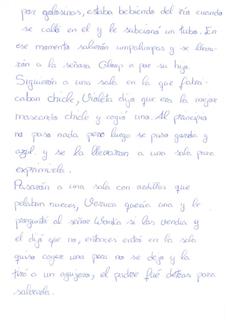 por golosinas, estaba bebiendo del río cuando
se calló en el y le subcionó un tubo. En
ese momento salieron umpalumpas y se lleva-
rón a la señora Gloop a por su hijo.
Siguieron a una sala en la que fabri-
caban chicle, Violeta dijo que era la mejor
mascando chicle y cogió uno. Al principio
no pasa nada pero luego se puso gorda y
azul y se la llevaron a una sala para
exprimirla.
Pasarón a una sala con ardillas que
pelaban nueces, Veruca quería una y le
preguntó al señor Wonka si las vendia y
el dijó que no, entonces entró en la sala
quiso cojer una pero no se dejo y la
tiró a un agujero, el padre fué detras para
salvarla.